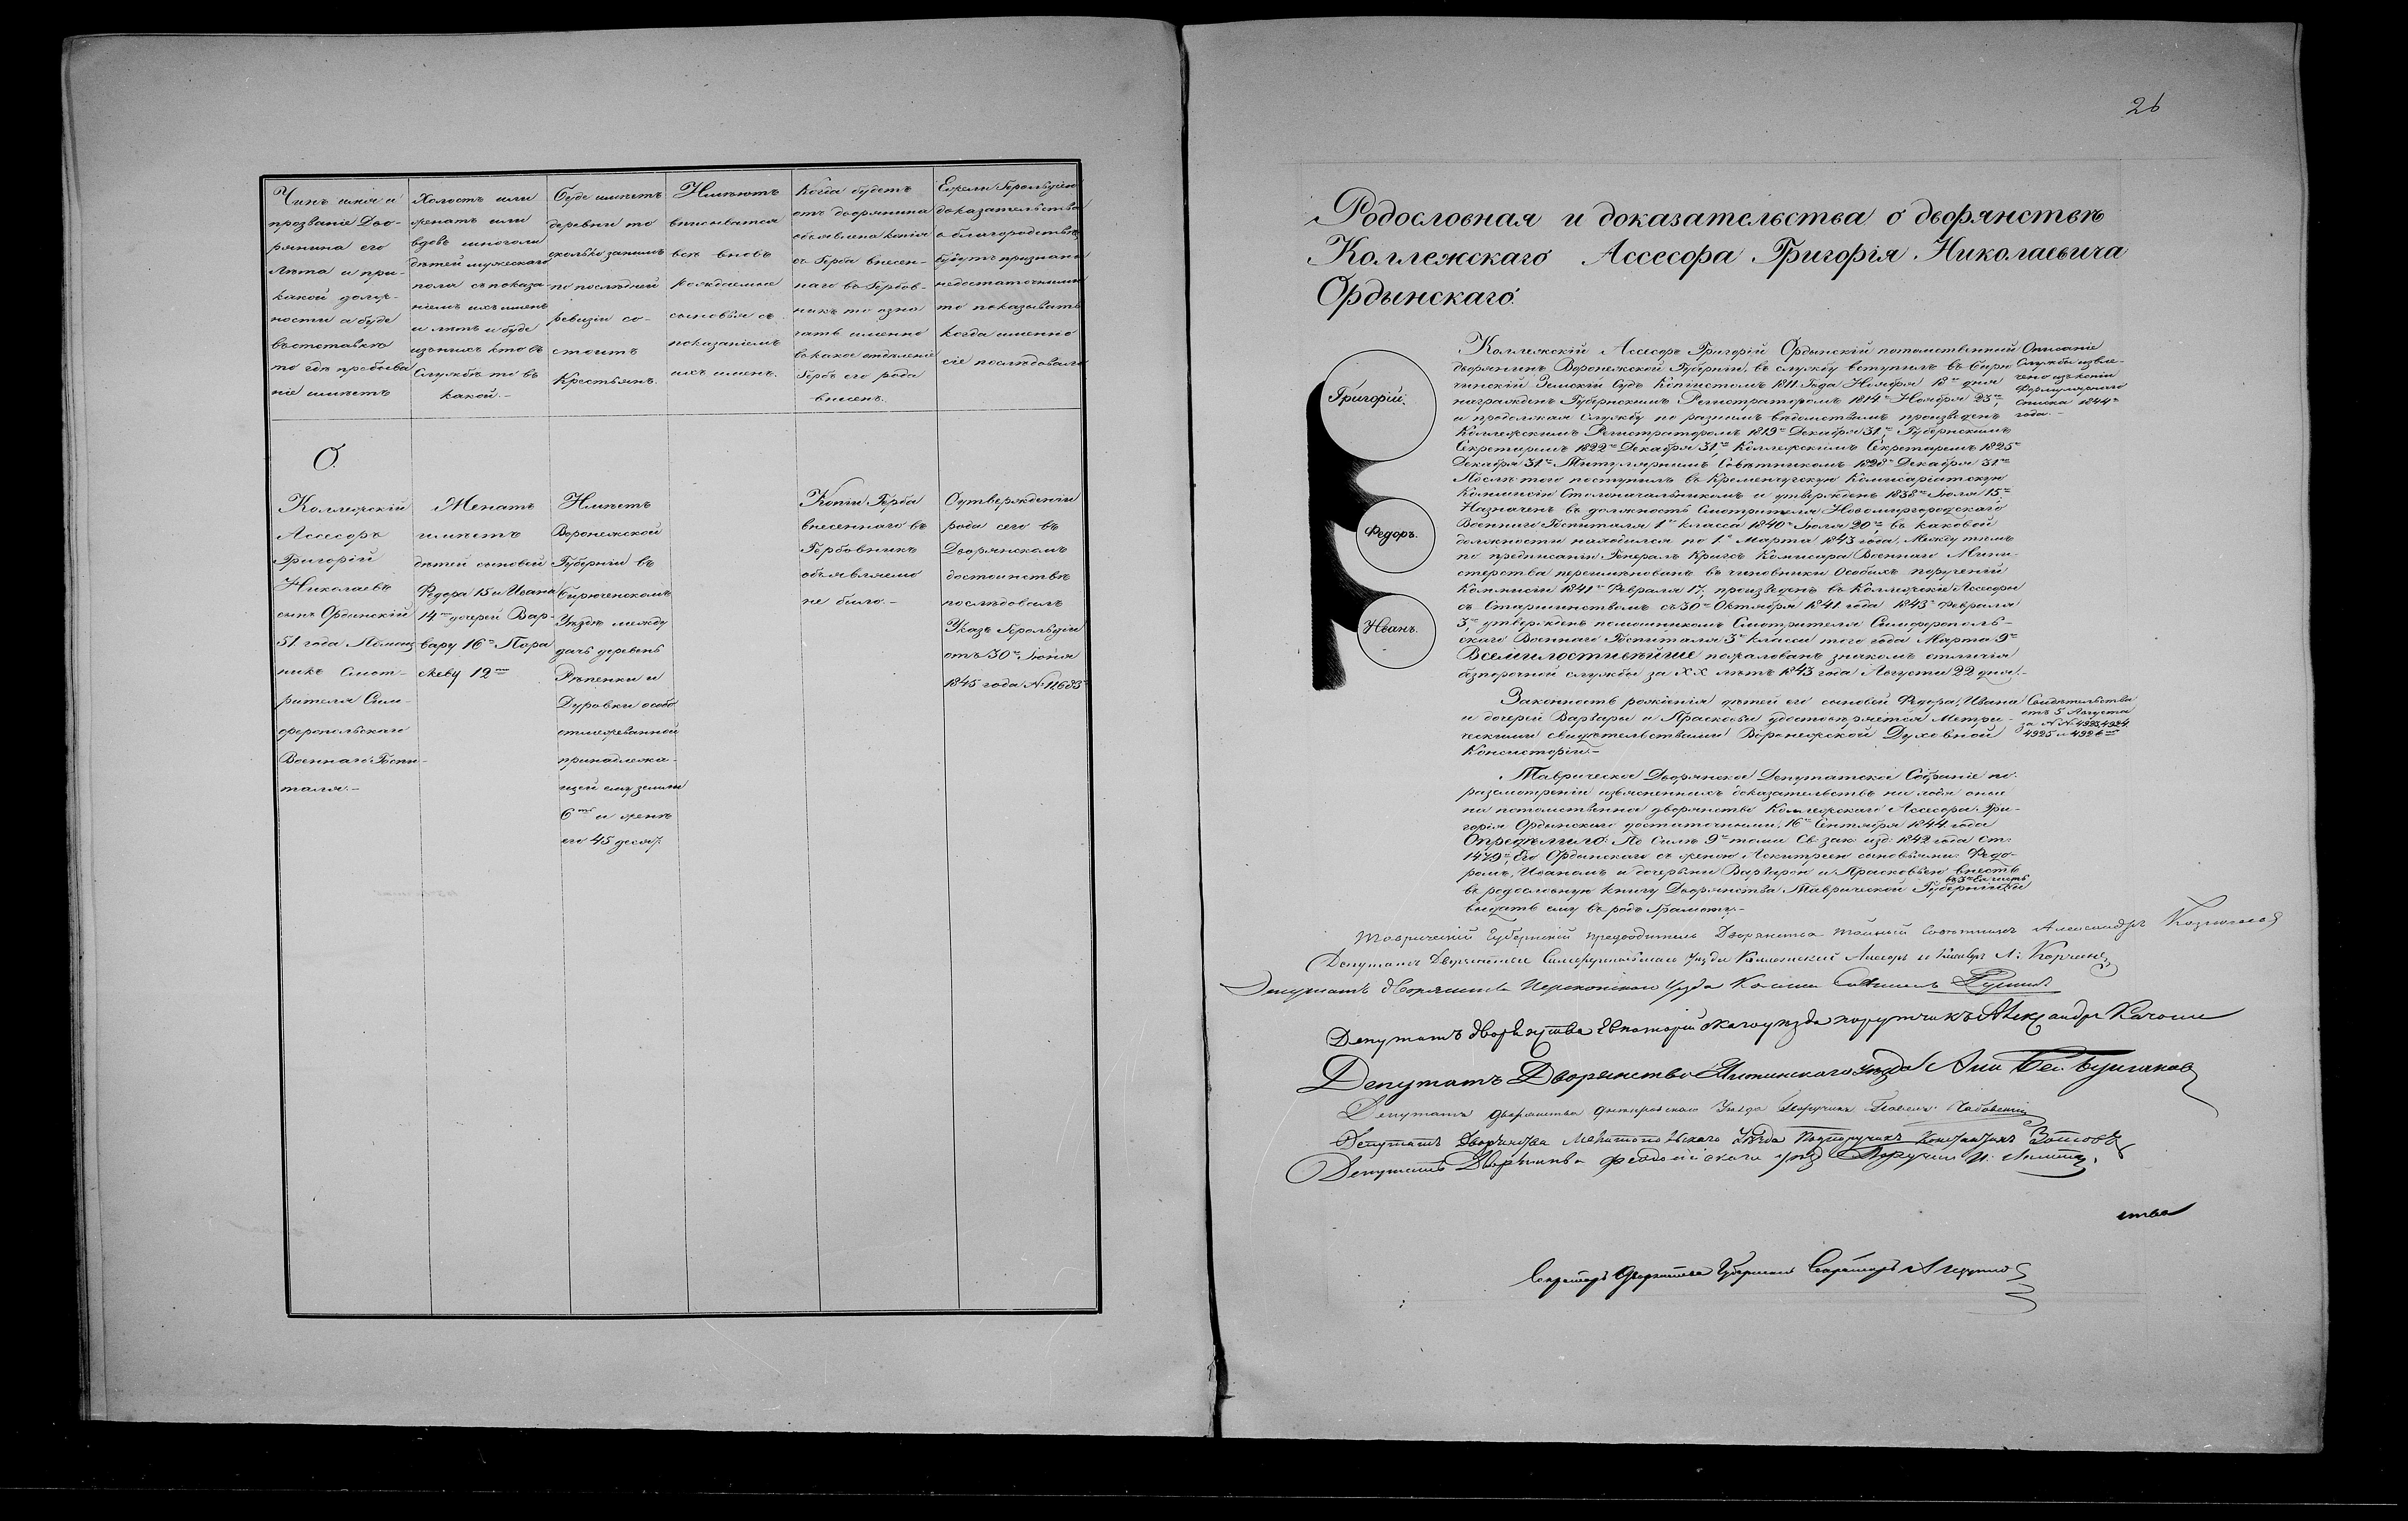 Чинъ имя и
прозваніе Дво-
рянина его
лѣта и при
какой долж-
ности а буде
въ отставкѣ
то гдѣ пребыва
ніе имѣетъ
Холостъ или
женатъ или
вдовъ и много ли
дѣтей мужескаго
пола съ показа-
ніемъ ихъ именъ
и лѣтъ и буде
изъ нихъ кто въ
службѣ то въ
какой.-
Буде имѣетъ
деревни то
сколько за нимъ
по послѣдней
ревизіи со-
стоитъ
Крестьянъ.
Имѣютъ
вписыватся
всѣ вновь
рождаемые
сыновья съ
показаніемъ
ихъ именъ.
Когда будетъ
отъ дворянина
объявлена копія
съ Герба внесен-
наго въ Гербов-
никъ то озна
чать именно
въ какое отдѣленіе
Гербъ его рода
внесенъ.
Ежели Герольдіею
доказательства
о благородствѣ
будутъ признаны
недостаточными
то показывать
когда именно
сіе послѣдовало
О.
Коллежскій
Ассесоръ
Григорій
Николаевъ
сынъ Ордынскій
51 года Помощ
никъ Смот-
рителя Сим-
феропольскаго
Военнаго Госпи-
таля.-
Женатъ
имѣетъ
дѣтей сыновей
Федора 15 и Ивана
14 дочерей Вар-
вару 16 Пора
скеву 12
Имѣетъ
Воронежской
Губерніи въ
Бирюченскомъ
Уѣздѣ между
дачъ деревень
Рѣпенки и
Дуровки особо
отмежеванной
принадлежа-
щей ему земли
6 и женѣ
его 45 десят.
Копіи Герба
внесеннаго въ
Гербовникъ
объявляемо
не было.-
О утвержденіи
рода сего въ
Дворянскомъ
достоинствѣ
послѣдовалъ
Указъ Герольдіи
отъ 30 Іюня
1845 года №12683
26
Родословная и доказательства о дворянствѣ
Коллежскаго Ассесора Григорія Николаевича
Ордынскаго.
Григорій.
Федоръ.
Иванъ.
Коллежскій Ассесоръ Григорій Ордынскій потомственный
дворянинъ Воронежской Губерніи, въ службу вступилъ въ Бирю
чинскій Земскій Судъ Копіистомъ 1811 Года Ноября 18 дня
награжденъ Губернскимъ Регистраторомъ 1814 Ноября 23,
и продолжая службу по разнымъ вѣдомствамъ произведенъ
Коллежскимъ Регистраторомъ 1819 Декабря 31, Губернскимъ
Секретаремъ 1822 Декабря 31, Коллежскимъ Секретаремъ 1825
Декабря 31 Титулярнымъ Совѣтникомъ 1828 Декабря 31
Послѣ того поступилъ въ Кременчугскую Комисаріатскую
Коммисію Столоначальникомъ и утвержденъ 1838 Іюля 15
Назначенъ въ должность Смотрителя Новомиргородскаго
Военнаго Госпиталя 1 класса 1840 Іюля 20, въ каковой
должности находился по 1 Марта 1843 года, Между тѣмъ
по предписанію Генералъ Кригсъ Комисара Военнаго Мини-
стерства переименованъ въ чиновники Особыхъ порученій
Коммисіи 1841 Февраля 17, произведенъ въ Коллежскіе Ассесоры
съ Старшинствомъ съ 30 Октября 1841 года 1843 Февраля
3, утвержденъ помощникомъ Смотрителя Симферополь-
скаго Военнаго Госпиталя 3 класса того года Марта 9
Всемилостивѣйше пожалованъ знакомъ отличія
безпорочной службы за XX лѣтъ 1843 года Августа 22 дня.-
Описаніе
службы извле-
чено изъ копіи
Формулярнаго
списка 1844
года.-
Законность рожденія дѣтей его сыновей Федора, Ивана
и дочерей Варвары и Прасковьи удостовѣряется Метри-
ческими свидѣтельствами Воронежской Духовной
Консисторіи.-
Свидѣтельства
отъ 5 Августа
за №№ 4923, 4924
4925 и 4926
Таврическое Дворянское Депутатское Собраніе по
разсмотрѣніи изъясненныхъ доказательствъ находя оные
на потомственное дворянство Коллежскаго Ассесора Гри-
горія Ордынскаго достаточными, 16 Сентября 1844 года
Опредѣлило: По Силѣ 9 тома Св. зак. изд. 1842 года ст.
1479, Его Ордынскаго съ женою сыновьями: Федо-
ромъ, Иваномъ и дочерьми Варварою и Прасковьею внесть
въ родословную книгу Дворянства Таврической Губерніи и
въ 3 Ея часть
выдать ему въ родъ Грамоту.-
Таврический Губернский предводитель Дворянства Тайный Совѣтникъ Александръ Казначеев
Депутатъ Дворянства Симферопольскаго Уѣзда Коллежский Ассесоръ и Кавалеръ
Депутатъ дворянства Перекопскаго Уѣзда
Депутатъ дворянства Евпаторійскаго уѣзда поручикъ Александръ Качони
Депутатъ Дворянства Ялтинскаго Уѣзда Али Бей Булгаковъ
Депутатъ дворянства Днепровскаго Уѣзда Поручикъ Павелъ
Депутатъ Дворянства Мелитопольскаго Уѣзда Подпоручикъ Константинъ Зотовъ
Депутатъ Дворянства Феодосійскаго уѣзд Поручик
ства
Секретарь Дворянства Губернский Секретарь